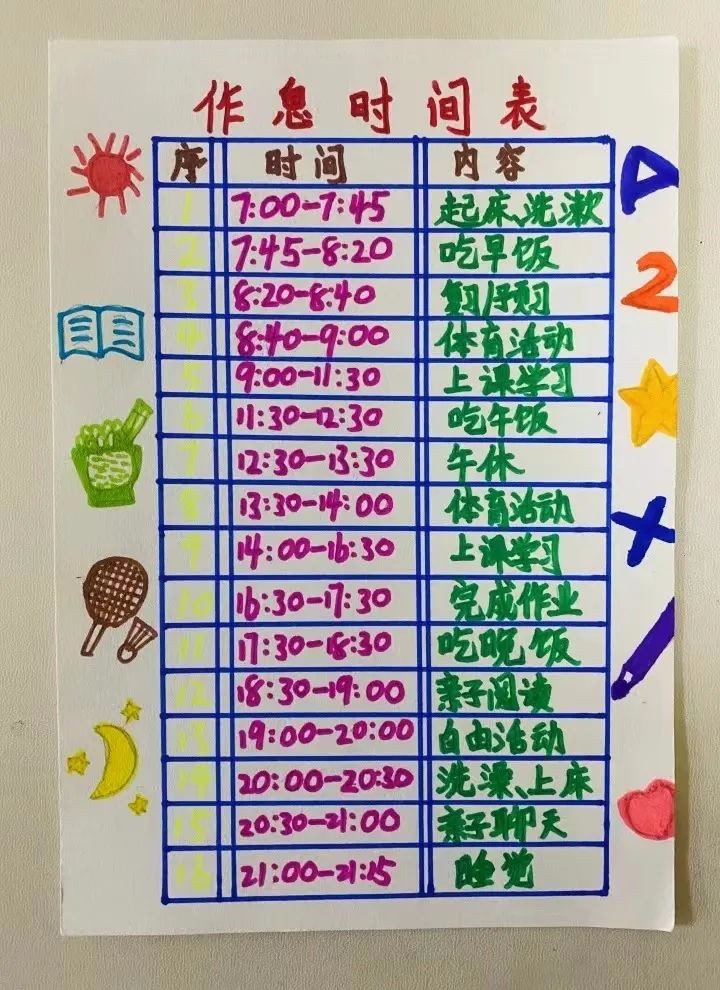 作息时间表
序 时间 内容
1 7:00-7:45 起床、洗漱
2 7:45-8:20 吃早饭
3 8:20-8:40 复习/预习
4 8:40-9:00 体育活动
5 9:00-11:30 上课学习
6 11:30-12:30 吃午饭
7 12:30-13:30 午休
8 13:30-14:00 体育活动
9 14:00-16:30 上课学习
10 16:30-17:30 完成作业
11 17:30-18:30 吃晚饭
12 18:30-19:00 亲子阅读
13 19:00-20:00 自由活动
14 20:00-20:30 洗澡、上床
15 20:30-21:00 亲子聊天
16 21:00-21:15 睡觉
2